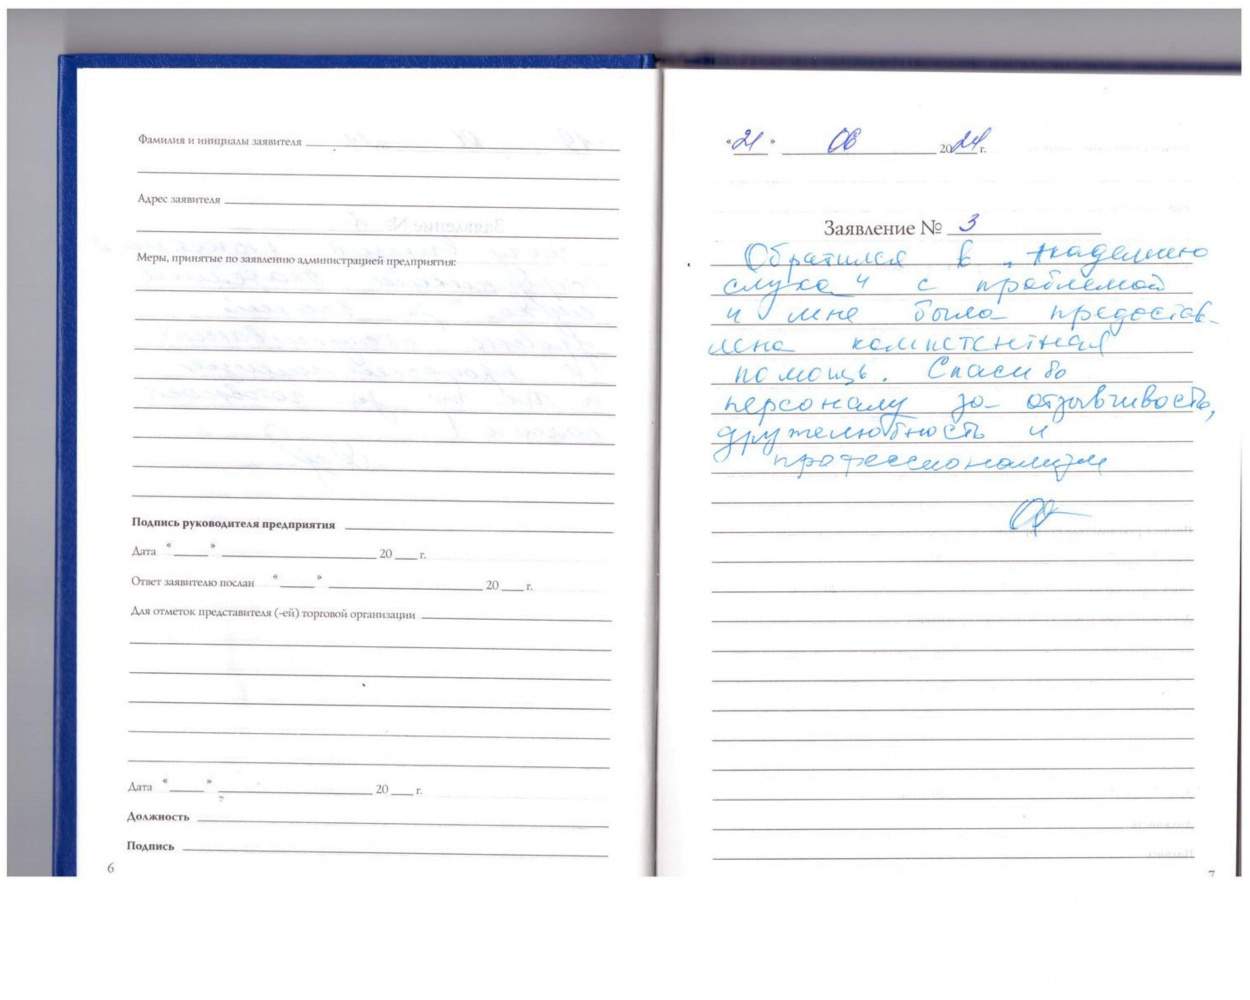 Фамилия и инициалы заявителя
Адрес заявителя
Меры, принятые по заявлению администрацией предприятия:
Подпись руководителя предприятия
Дата " " 20 г.
Ответ заявителю послан " " 20 г.
Для отметок представителя (-ей) торговой организации
Дата " " 20 г.
Должность
Подпись
6
"21" 06 2024 г.
Заявление № 3
Обратился в „Академию
слуха" с проблемой
и мне была предостав-
лена компетентная
помощь. Спасибо
персоналу за отзывчивость,
дружелюбность и
профессионализм
7